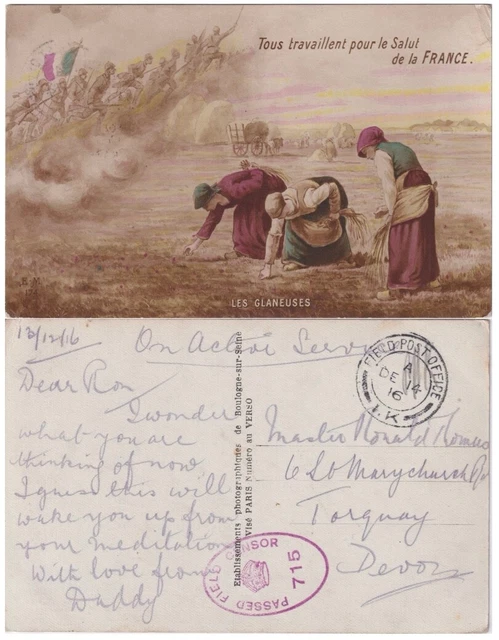 Tous travaillent pour le Salut
de la FRANCE.
LES GLANEUSES
13/12/16
On Active Serv
FIELD POST OFFICE
A
DE 14
16
I.K
Dear Ron
I wonder
what you are
thinking of now
I guess this will
wake you up from
your meditation
With love from
Daddy
Etablissements photographiques de Boulogne-sur-Seine
Visé PARIS Numéro au VERSO
Master Ronald
6 St Marychurch
Torquay
Devon
PASSED FIELD CENSOR
715